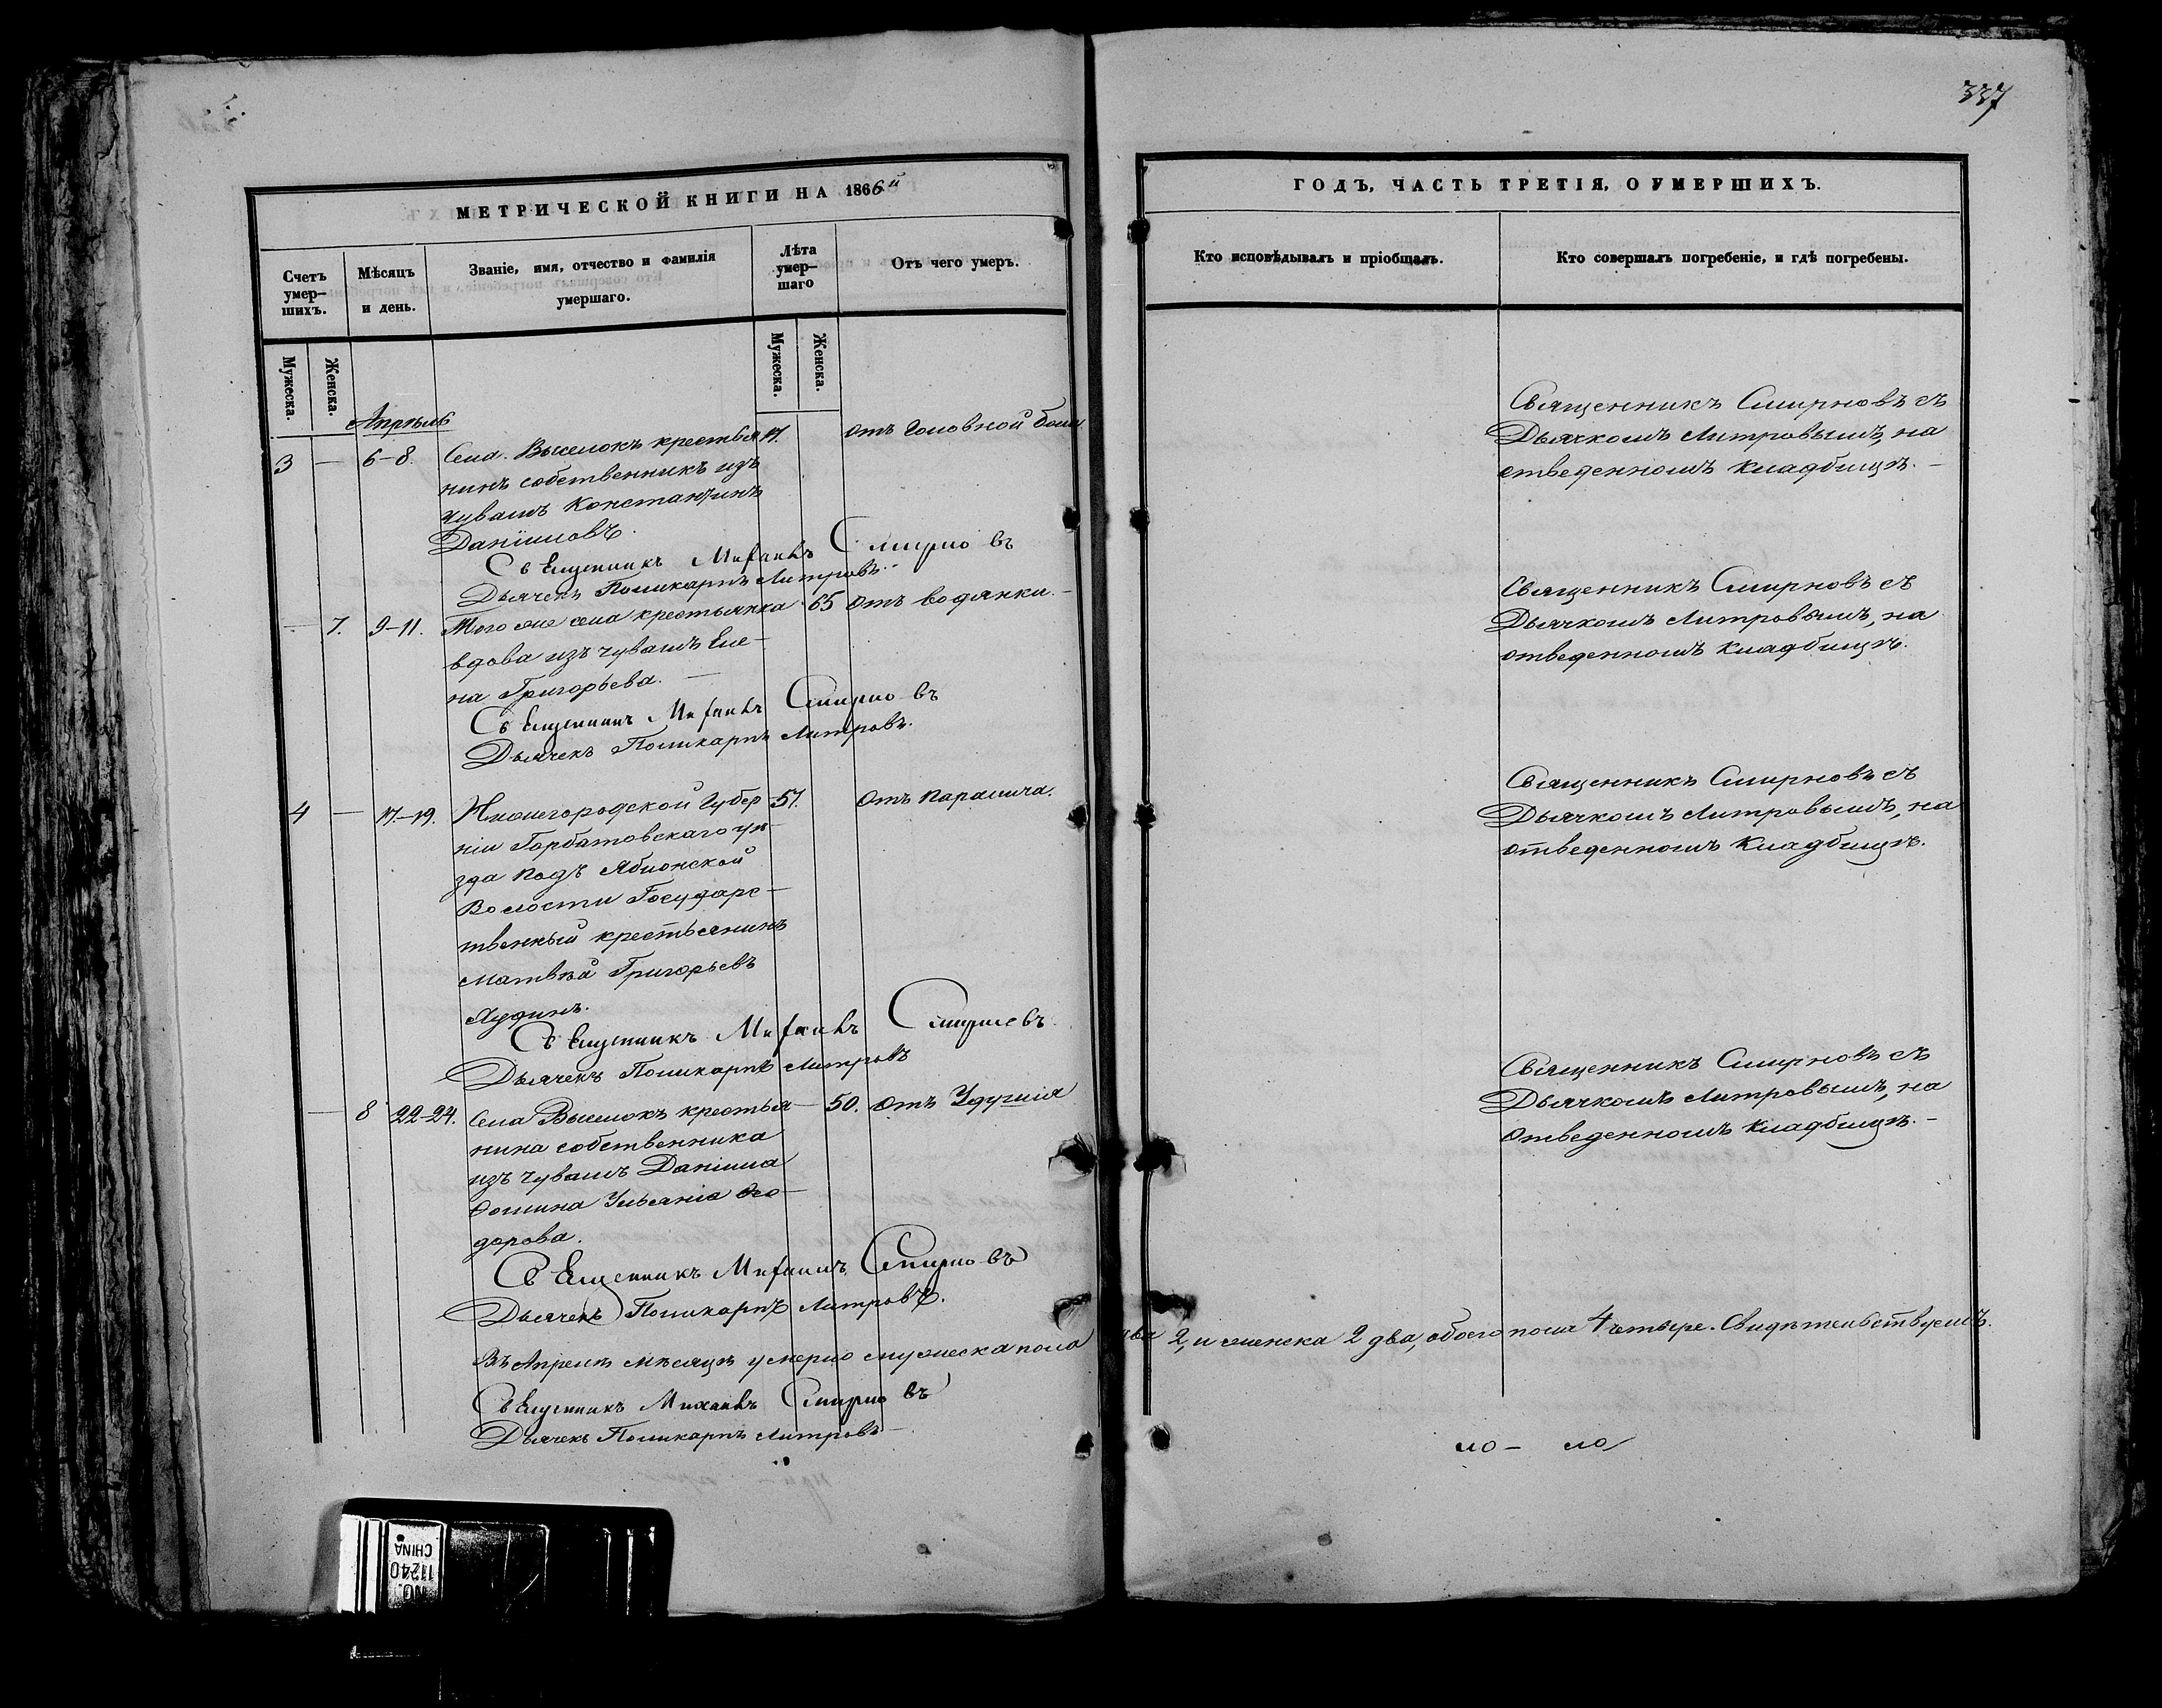 337
МЕТРИЧЕСКОЙ КНИГИ НА 1866й
ГОДЪ, ЧАСТЬ ТРЕТІЯ, О УМЕРШИХЪ.
Счетъ умер-шихъ.
Мѣсяцъ и день.
Званіе, имя, отчество и фамилія умершаго.
Лѣта умер-шаго
Отъ чего умеръ.
Кто исповѣдывалъ и пріобщалъ.
Кто совершалъ погребеніе, и гдѣ погребены.
Мужеска.
Женска.
Мужеска.
Женска.
Апрѣль
3 — 6-8. Села Выселокъ крестья 17. отъ головной боли
нинъ собственникъ изъ
чувашъ Константинъ
Даніиловъ.
Священникъ Михаилъ Смирновъ
Дьячекъ Поликарпъ
Священникъ Смирновъ съ
Дьячкомъ на
отведенномъ кладбищѣ.—
— 7. 9-11. Того же села крестьянка 65 отъ водянки.—
вдова изъ чувашъ Еле-
на Григорьева.—
Священникъ Михаилъ Смирновъ
Дьячекъ Поликарпъ
Священникъ Смирновъ съ
Дьячкомъ на
отведенномъ кладбищѣ.
4 — 17.-19. Нижегородской Губер- 57. отъ паралича.
ніи Горбатовскаго уѣ-
зда Подъ Яблонской
Волости Государс-
твенный крестьянинъ
Матвѣй Григорьевъ
Священникъ Михаилъ Смирновъ
Дьячекъ Поликарпъ
Священникъ Смирновъ съ
Дьячкомъ на
отведенномъ кладбищѣ.
— 8 22-24. Села Выселокъ крестья- 50. отъ Удушія
нина собственника
изъ чувашъ Даніила
Ѳомина Ульянія Ѳео-
дорова.
Священникъ Михаилъ Смирновъ
Дьячекъ Поликарпъ
Священникъ Смирновъ съ
Дьячкомъ на
отведенномъ кладбищѣ.—
Въ Апрелѣ мѣсяцѣ умерло мужеска пола два 2, и женска 2 два, обоего пола 4 четыре. Свидѣтельствуемъ.
Священникъ Михаилъ Смирновъ
Дьячекъ Поликарпъ
ло— ло
NO.
11240
CHINA